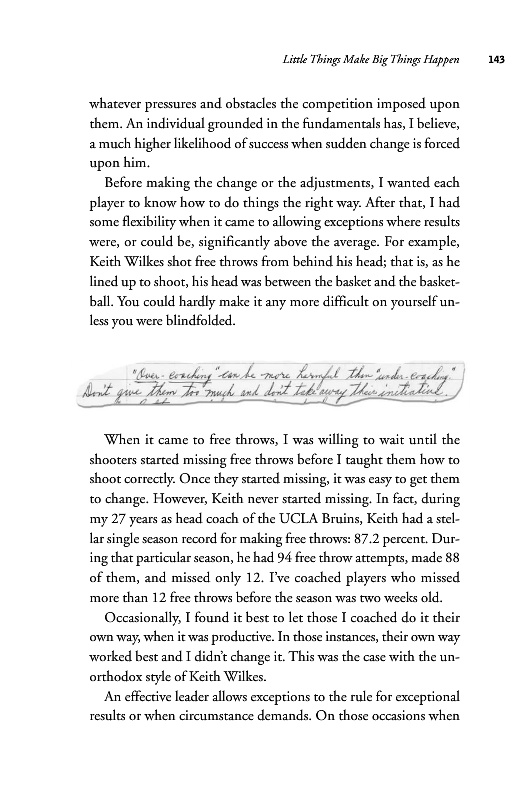 Little Things Make Big Things Happen 143
whatever pressures and obstacles the competition imposed upon
them. An individual grounded in the fundamentals has, I believe,
a much higher likelihood of success when sudden change is forced
upon him.
Before making the change or the adjustments, I wanted each
player to know how to do things the right way. After that, I had
some flexibility when it came to allowing exceptions where results
were, or could be, significantly above the average. For example,
Keith Wilkes shot free throws from behind his head; that is, as he
lined up to shoot, his head was between the basket and the basket-
ball. You could hardly make it any more difficult on yourself un-
less you were blindfolded.
"Over-coaching" can be more harmful than "under-coaching."
Don't give them too much and don't take away their initiative.
When it came to free throws, I was willing to wait until the
shooters started missing free throws before I taught them how to
shoot correctly. Once they started missing, it was easy to get them
to change. However, Keith never started missing. In fact, during
my 27 years as head coach of the UCLA Bruins, Keith had a stel-
lar single season record for making free throws: 87.2 percent. Dur-
ing that particular season, he had 94 free throw attempts, made 88
of them, and missed only 12. I've coached players who missed
more than 12 free throws before the season was two weeks old.
Occasionally, I found it best to let those I coached do it their
own way, when it was productive. In those instances, their own way
worked best and I didn't change it. This was the case with the un-
orthodox style of Keith Wilkes.
An effective leader allows exceptions to the rule for exceptional
results or when circumstance demands. On those occasions when